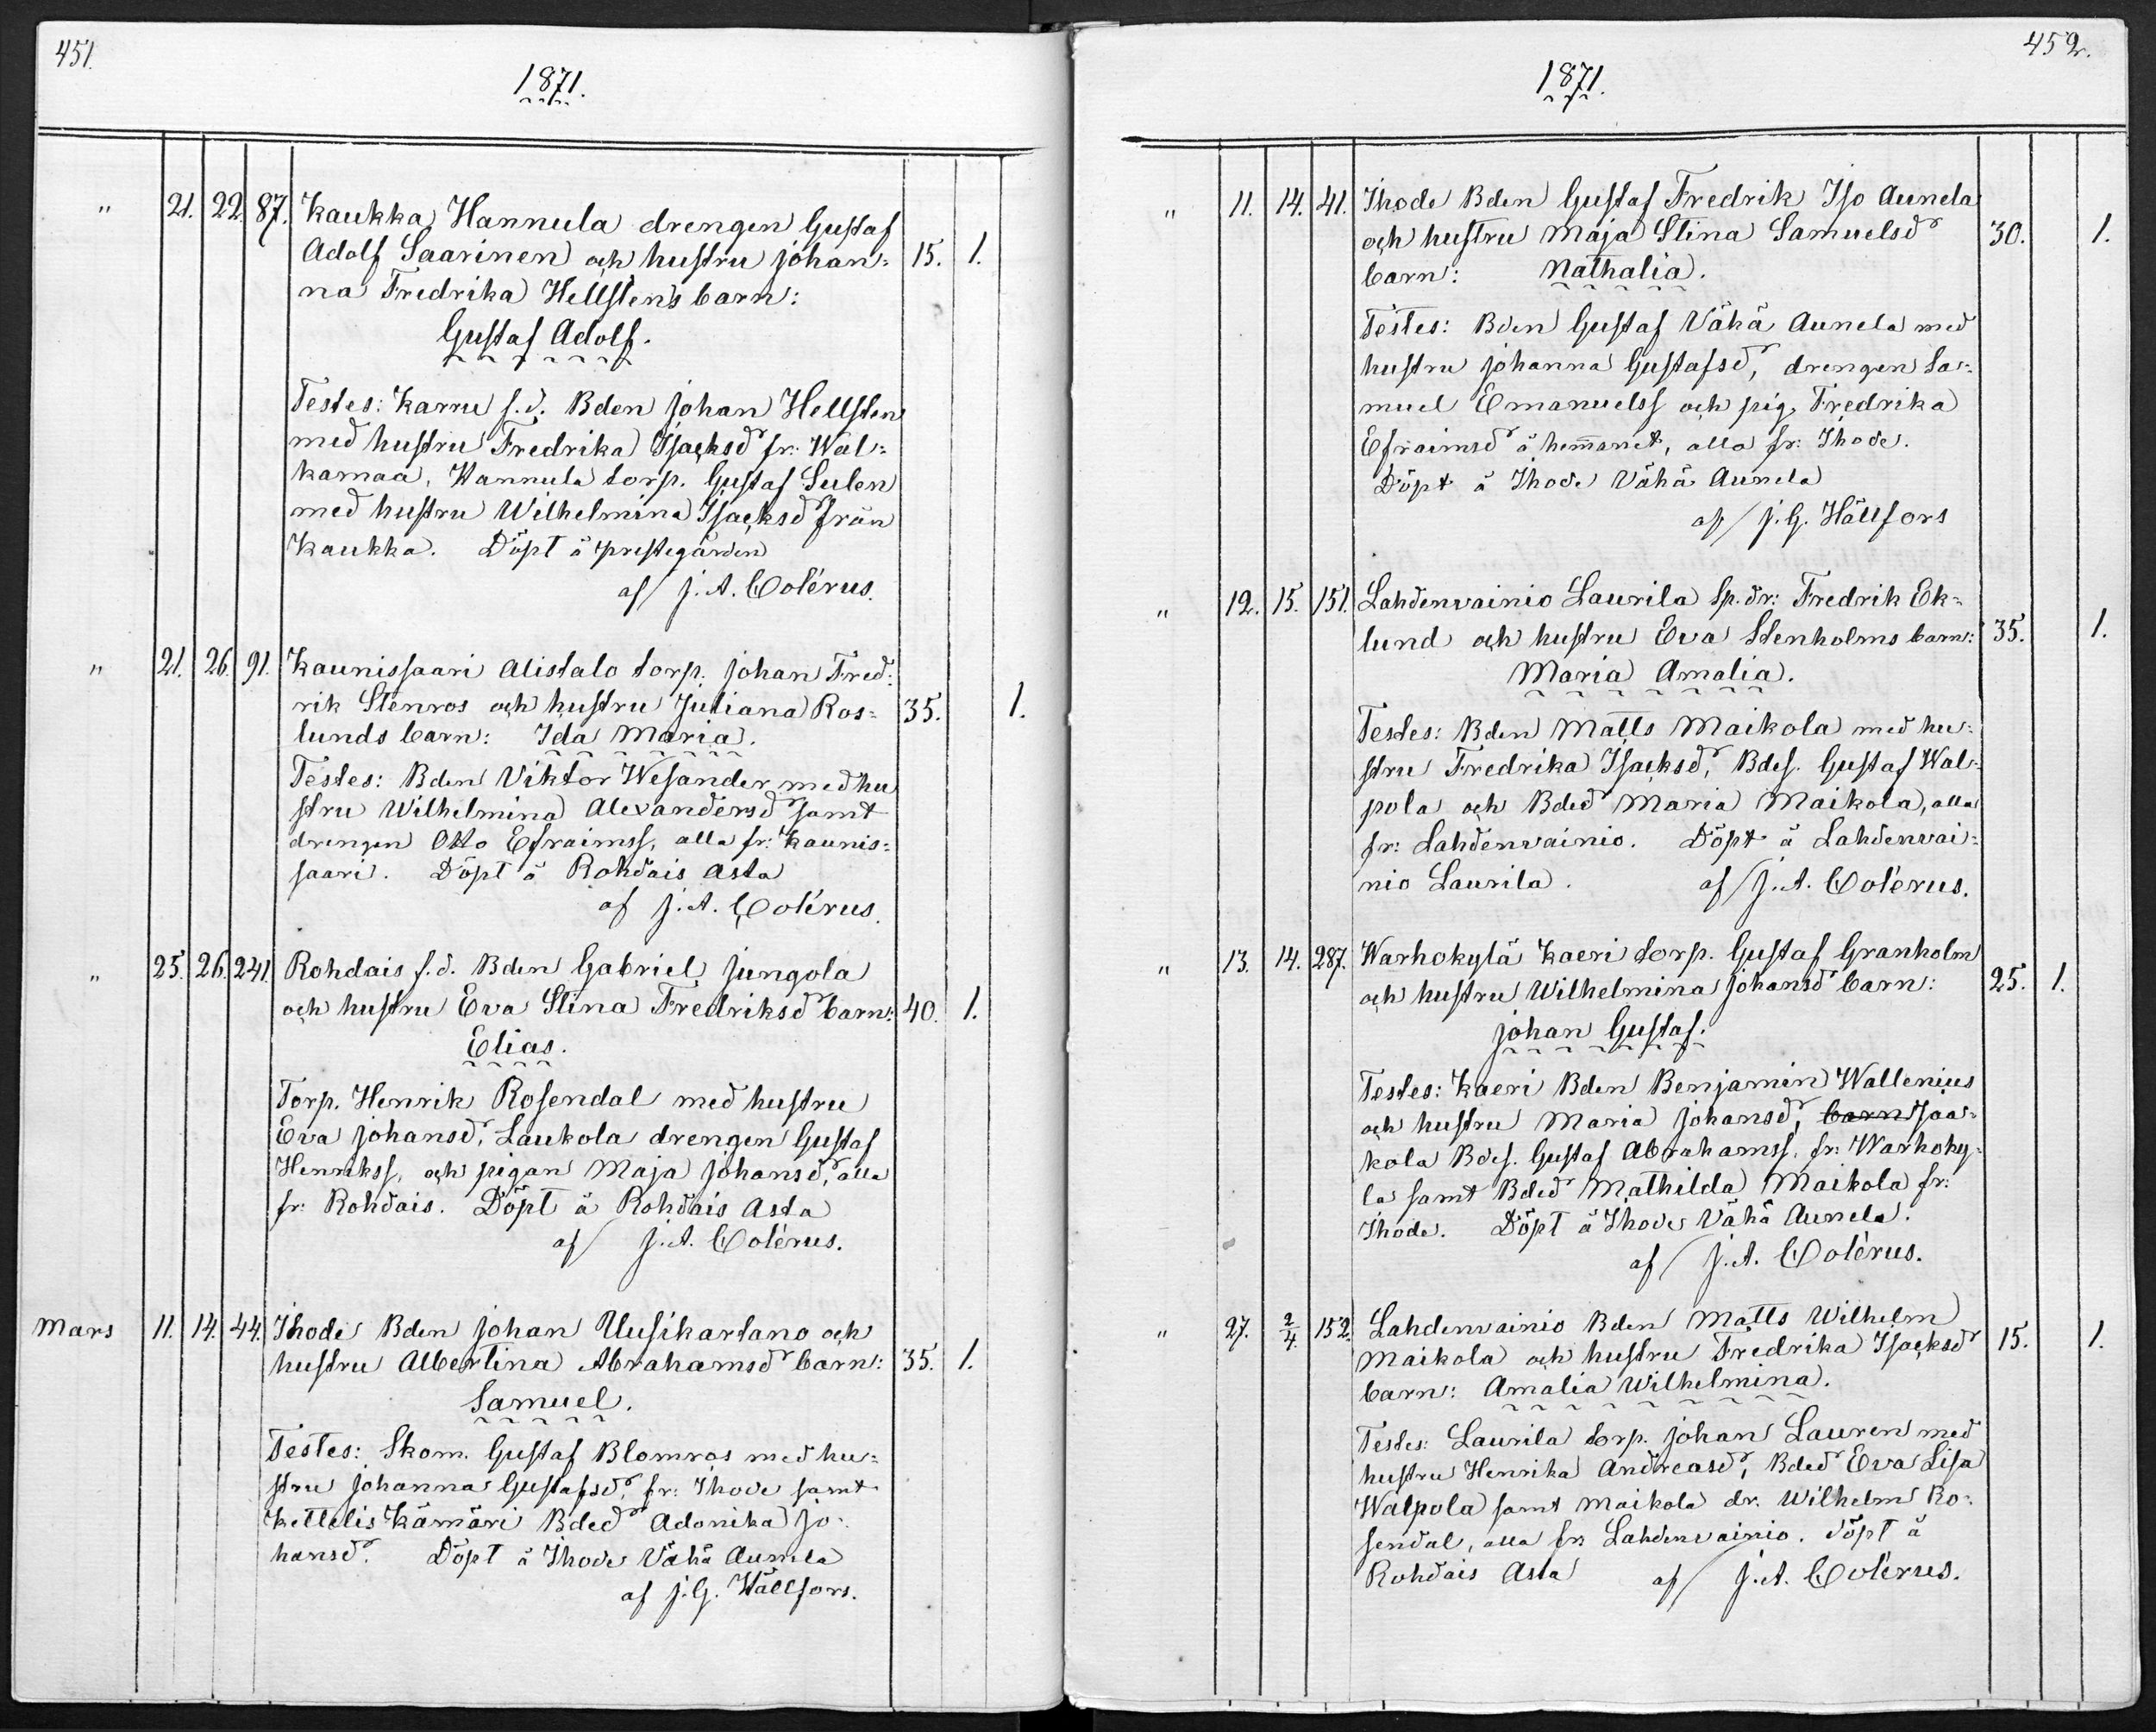 451.
1871.
" 21. 22. 87. Kaukka Hannula drengen Gustaf
Adolf Saarinen och hustru Johan= 15. 1.
na Fredrika Hellstens barn:
Gustaf Adolf.
Testes: Karru f.d. Bden Johan Hellsten
med hustru Fredrika Isacksdr fr: Wal=
kamaa, Hannula torp. Gustaf Sulen
med hustru Wilhelmina Isacksdr från
Kaukka. Döpt å prestegården
af J. A. Colérus.
" 21. 26. 91. Kaunissaari Alistalo torp. Johan Fred=
rik Stenros och hustru Juliana Ros= 35. 1.
lunds barn: Ida Maria.
Testes: Bden Viktor Wesander med hu
stru Wilhelmina Alexandersdr samt
drengen Otto Efraimss, alla fr: Kaunis=
saari. Döpt å Rohdais Asta
af J. A. Colérus.
" 25. 26. 241. Rohdais f.d. Bden Gabriel Jungola
och hustru Eva Stina Fredriksdr barn: 40. 1.
Elias.
Torp. Henrik Rosendal med hustru
Eva Johansdr, Laukola drengen Gustaf
Henrikss, och pigan Maja Johansdr, alla
fr: Rohdais. Döpt å Rohdais Asta
af J. A. Colérus.
Mars 11. 14. 44. Ihode Bden Johan Uusikartano och
hustru Albertina Abrahamsdr barn: 35. 1.
Samuel.
Testes: Skom. Gustaf Blomros med hu=
stru Johanna Gustafsdr, fr: Ihode samt
Kettelis Kämäri Bdedr Adonika Jo=
hansdr. Döpt å Ihode Vähä Aunela
af J. G. Hällfors.
452.
1871.
" 11. 14. 41. Ihode Bden Gustaf Fredrik Iso Aunela
och hustru Maja Stina Samuelsdr 30. 1.
barn: Nathalia.
Testes: Bden Gustaf Vähä Aunela med
hustru Johanna Gustafsdr, drengen Sa=
muel Emanuelss och pig. Fredrika
Efraimsdr å hemanet, alla fr: Ihode.
Döpt å Ihode Vähä Aunela
af J. G. Hällfors
" 12. 15. 151. Lahdenvainio Laurila Sp. dr: Fredrik Ek=
lund och hustru Eva Stenholms barn: 35. 1.
Maria Amalia.
Testes: Bden Matts Maikola med hu=
stru Fredrika Isacksdr, Bdes. Gustaf Wal=
pola och Bdedr Maria Maikola, alla
fr: Lahdenvainio. Döpt å Lahdenvai=
nio Laurila. af J. A. Colérus.
" 13. 14. 287. Warhokylä Kaeri torp. Gustaf Granholm
och hustru Wilhelmina Johansdr barn: 25. 1.
Johan Gustaf.
Testes: Kaeri Bden Benjamin Wallenius
och hustru Maria Johansdr, barn Jaa=
kola Bdes. Gustaf Abrahamss, fr: Warhoky=
la samt Bdedr Mathilda Maikola fr:
Ihode. Döpt å Ihode Vähä Aunela.
af J. A. Colérus.
" 27. 2/4. 152. Lahdenvainio Bden Matts Wilhelm
Maikola och hustru Fredrika Isacksdr 15. 1.
barn: Amalia Wilhelmina.
Testes: Laurila torp. Johan Lauren med
hustru Henrika Andreasdr, Bdedr Eva Lisa
Walpola samt Maikola dr. Wilhelm Ro=
sendal, alla fr: Lahdenvainio. Döpt å
Rohdais Asta af J. A. Colérus.